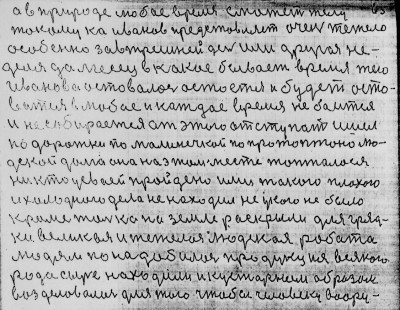 а в природе любое время сможет телу 65
такому как Иванов представлят очен тяжело
особенно завтрешней ден или другая не-
деля да месец в какое бывает время того
Иванова оставалос остается и будет оста-
ватся в любое и каждае время не баится
и несабирается от этого отступат шшел
по дорожки по малинечкой по протоптоно лю-
дской дамаона на этом месте топталося
никто небыл пройдено или такого плохого
и холодного дела не находил не укого не было
кроме толка на земле раскрили для гряд-
ки великая и тежелоя людская работа
людям понадобилос продукция всякого
рода слуху находили и кустарным образом
возделовалос для того чтобы человеку воору-